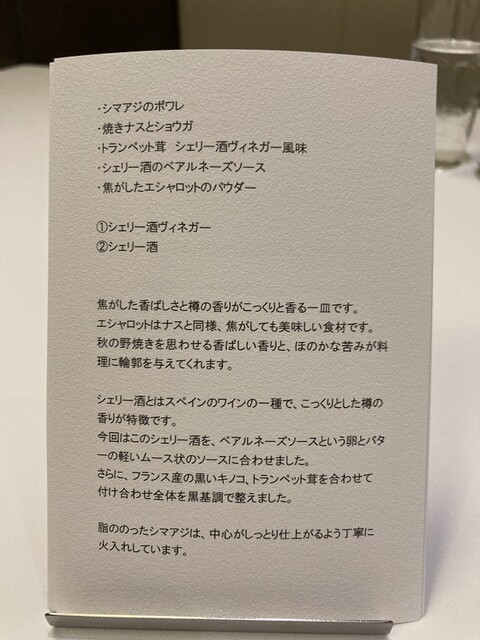 ・シマアジのポワレ
・焼きナスとショウガ
・トランペット茸　シェリー酒ヴィネガー風味
・シェリー酒のベアルネーズソース
・焦がしたエシャロットのパウダー
①シェリー酒ヴィネガー
②シェリー酒
焦がした香ばしさと樽の香りがこっくりと香る一皿です。
エシャロットはナスと同様、焦がしても美味しい食材です。
秋の野焼きを思わせる香ばしい香りと、ほのかな苦みが料
理に輪郭を与えてくれます。
シェリー酒とはスペインのワインの一種で、こっくりとした樽の
香りが特徴です。
今回はこのシェリー酒を、ベアルネーズソースという卵とバタ
ーの軽いムース状のソースに合わせました。
さらに、フランス産の黒いキノコ、トランペット茸を合わせて
付け合わせ全体を黒基調で整えました。
脂ののったシマアジは、中心がしっとり仕上がるよう丁寧に
火入れしています。